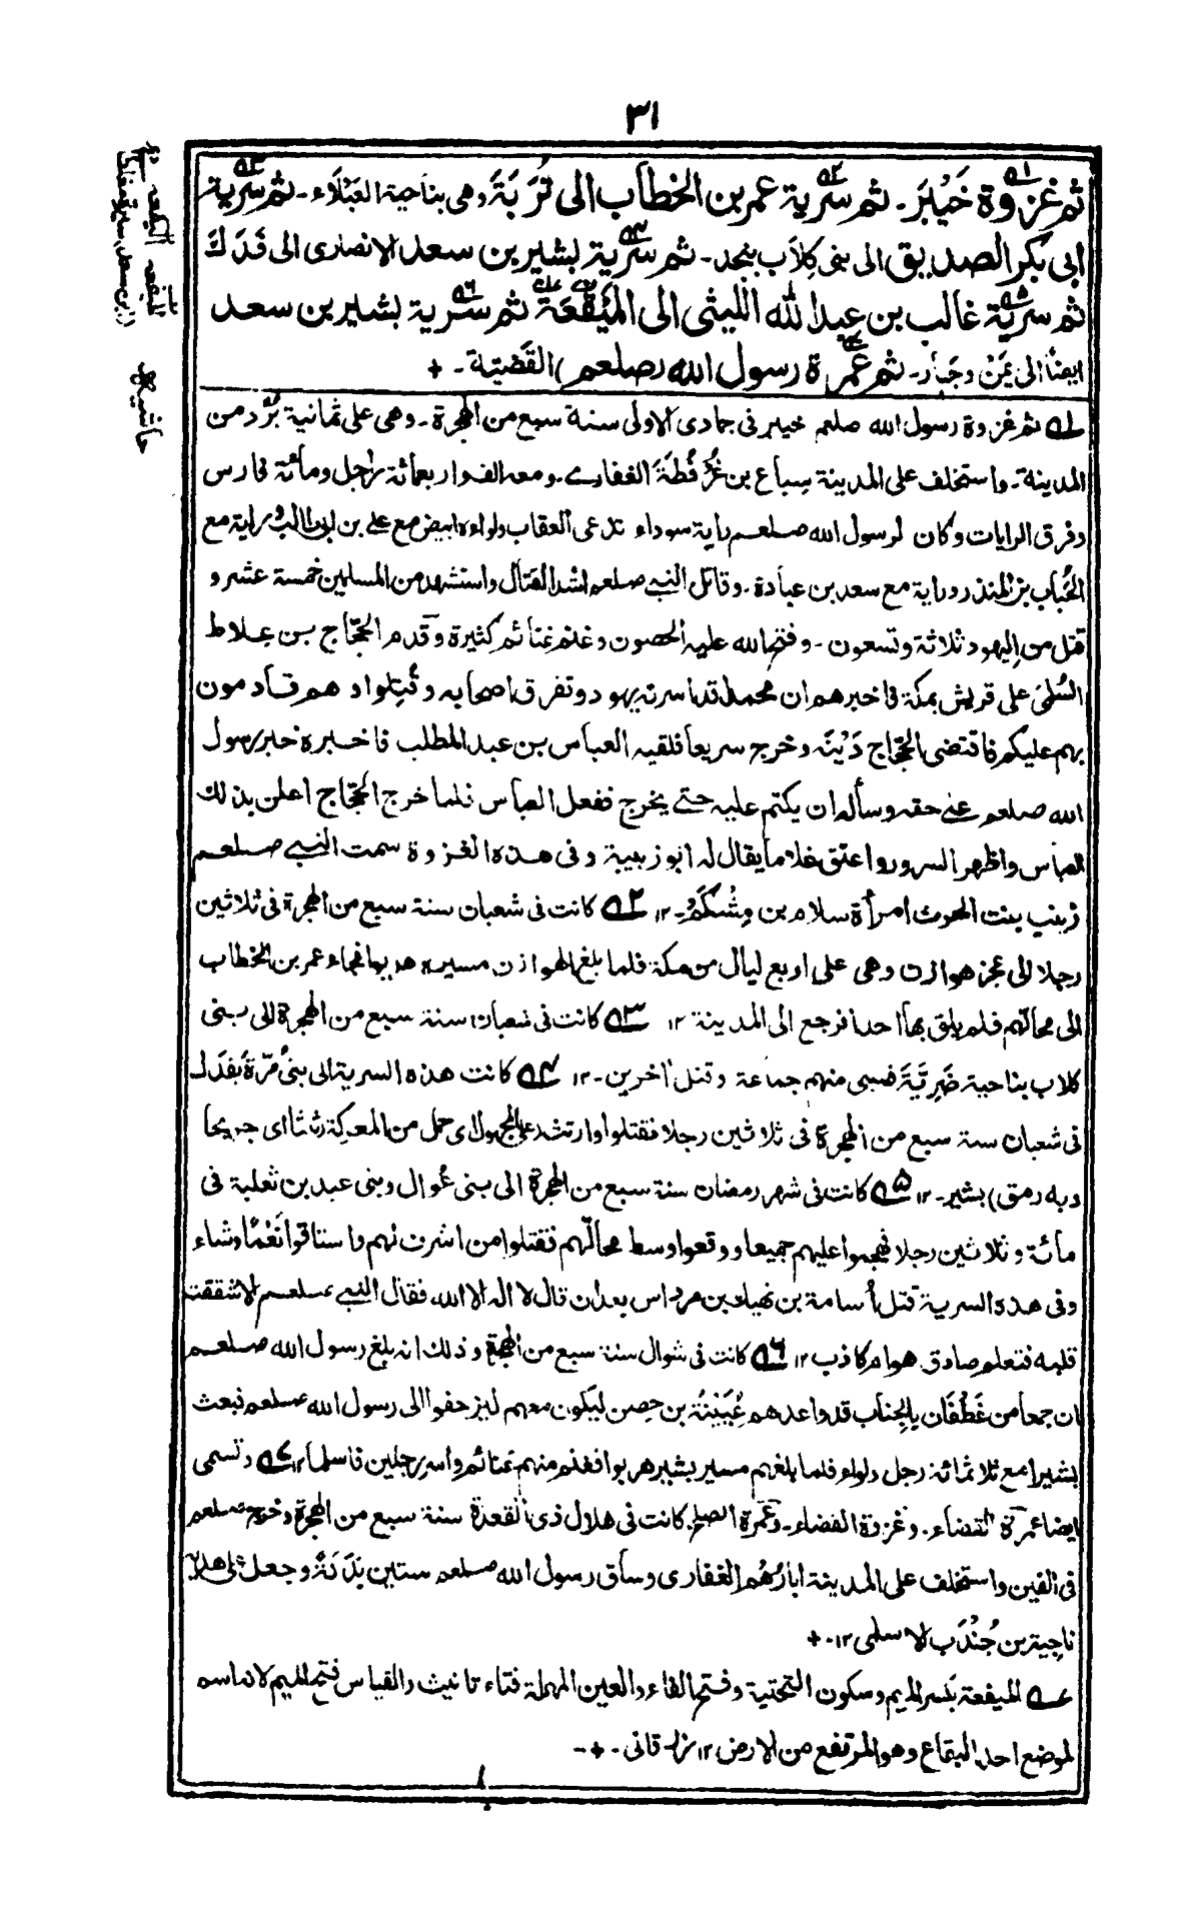 ٣١
ثم غزوة خَيْبَرَ۔ ثم سَرِيّة عمر بن الخطاب الى تُرَبَةَ وهى بناحية العَبْلَاء۔ ثم سَرِيّة
ابى بكر الصديق الى بنى كِلَاب بنجد۔ ثم سَرِيّة بشير بن سعد الانصارى الى فَدَكَ
ثم سريّة غالب بن عبد الله الليثى الى المَيْفَعَة ثم سرية بشير بن سعد
ايضًا الى يَمَنْ وجَبار۔ ثم عُمرة رسول الله (صلعم) القَضِيّة۔ +
١ ثم غزوة رسول الله صلعم خيبر فى جمادى الاولى سنة سبع من الهجرة۔ وهى على ثمانية بُرُد من
المدينة۔ واستخلف على المدينة سباع بن عُرْفُطَةَ الغفارى۔ ومعه الف واربعمائة راجل ومائة فارس
وفرق الرايات وكان لرسول الله صلعم راية سوداء تدعى العقاب ولواءه ابيض مع على بن ابى طالب وراية مع
الحُباب بن المنذر وراية مع سعد بن عبادة۔ وقاتل النبى صلعم اشد القتال واستشهد من المسلمين خمسة عشر و
قتل من اليهود ثلاثة وتسعون۔ وفتح الله عليه الحصون وغنم غنائم كثيرة وقدم الحجّاج بن علاط
السُلمى على قريش بمكة فاخبرهم ان محمدا قد اسرته يهود وتفرق اصحابه وقُتِلوا وهم قادمون
بهم عليكم فاقتضى الحجّاج دَيْنَه وخرج سريعا فلقيه العباس بن عبد المطلب فاخبره خبر رسول
الله صلعم على حقه وسأله ان يكتم عليه حتى يخرج ففعل العباس فلما خرج الحجّاج اعلن بذلك
العباس واظهر السرور واعتق غلاما يقال له ابو زبيبة وفى هذه الغزوة سمت النبى صلعم
زينب بنت الحرث امرأة سلام بن مِشْكَمْ۔١٢ ٢ كانت فى شعبان سنة سبع من الهجرة فى ثلاثين
رجلا الى عجز هوازن وهى على اربع ليال من مكة فلما بلغ الهوازن مسيره هربوا فجاء عمر بن الخطاب
الى محالّهم فلم يلق بها احدا فرجع الى المدينة ١٢ ٣ كانت فى شعبان سنة سبع من الهجرة الى بنى
كلاب بناحية ضَرِيَّةَ فسبى منهم جماعة وقتل آخرين۔١٢ ٤ كانت هذه السرية الى بنى مُرّة بفَدَك
فى شعبان سنة سبع من الهجرة فى ثلاثين رجلا فقتلوا وارتث (على المجهول اى حمل من المعركة رثثا اى جريحا
وبه رمق) بشير۔١٢ ٥ كانت فى شهر رمضان سنة سبع من الهجرة الى بنى عُوال وبنى عبد بن ثعلبة فى
مائة وثلاثين رجلا فهجموا عليهم جميعا ووقعوا وسط محالّهم فقتلوا من اشرف لهم واستاقوا نَعْمًا وشاء
وفى هذه السرية قتل أسامة بن نهيك بن مرداس بعد ان قال لا اله الا الله فقال النبى صلعم الا شققت
قلبه فتعلم صادق هو ام كاذب ١٢ ٦ كانت فى شوال سنة سبع من الهجرة وذلك انه بلغ رسول الله صلعم
ان جمعا من غَطْفَان بالجِناب قد واعدهم عُيَيْنَة بن حِصن ليكون معهم ليزحفوا الى رسول الله صلعم فبعث
بشيرا مع ثلاثمائة رجل ولواء فلما بلغهم مسير بشير هربوا فغنم منهم غنائم واسر رجلين فاسلما١٢ ٧ وتسمى
ايضا عمرة القضاء۔ وغزوة القضاء۔ وعمرة الصلح كانت فى هلال ذى القعدة سنة سبع من الهجرة وخرج صلعم
فى الفين واستخلف على المدينة ابا رُهْم الغفارى وساق رسول الله صلعم ستين بَدَنَةً وجعل على هديه
ناجية بن جُنْدَب الاسلمى ١٢۔+
ع الميفعة بكسر الميم وسكون التحتية وفتح الفاء والعين المهملة فتاء تانيث والقياس فتح الميم لانه اسم
لموضع احد البقاع وهو المرتفع من الارض ١٢ زرقانى۔+۔
حاشيه